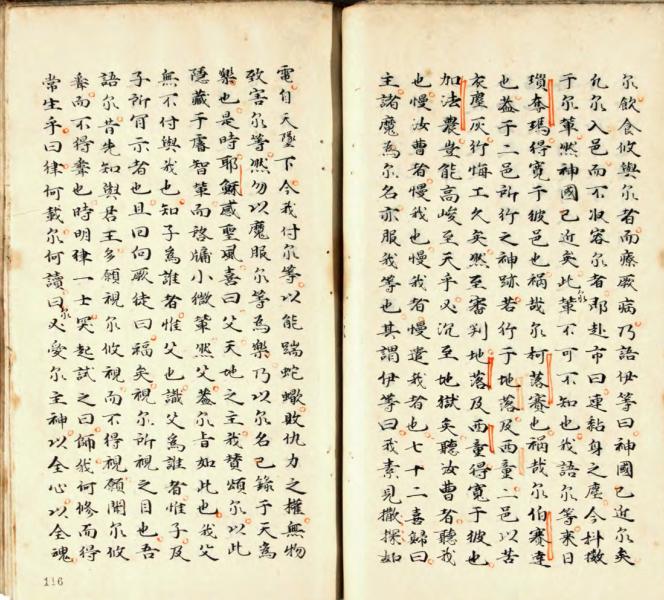 尔飲食攸與尔者而療厥病乃語伊等曰神國已近尔矣
凡尔入邑而不收容尔者即赴市曰連黏身之塵今抖擻
于尔輩然神國已近尔矣此輩不可不知也我語尔等来日
瑣奪瑪得寛于彼邑也禍哉尔柯落賽也禍哉尔伯賽達
也葢于二邑所行之神跡若行于地落及西童二邑以苦
衣塵灰行悔工久矣然至審判地落及西童得寛于彼也
加法農豈能高峻至天乎必沉至地獄矣聽汝曹者聽我
也慢汝曹者慢我也慢我者慢遣我者也七十二喜歸曰
主諸魔為尔名亦服我等也其謂伊等曰我素見撒探如
電自天墜下今我付尔等以能踹蛇蠍敗仇力之權無物
致害尔等然勿以魔服尔等為樂乃以尔名已錄于天為
樂也是時耶穌感聖風喜曰父天地之主我賛頌尔以此
隱藏于睿智輩而啓牖小微輩然父葢尔旨如此也我父
無不付與我也知子為誰者惟父也識父為誰者惟子及
子所肎示者也且囘向厥徒曰福矣視尔所視之目也吾
語尔昔先知與君王多願視尔攸視而不得視願聞尔攸
而不得也時明律一士突起試之曰師我何修而得
常生乎曰律何載尔何讀曰尔必愛尔主神以全心以全魂
116